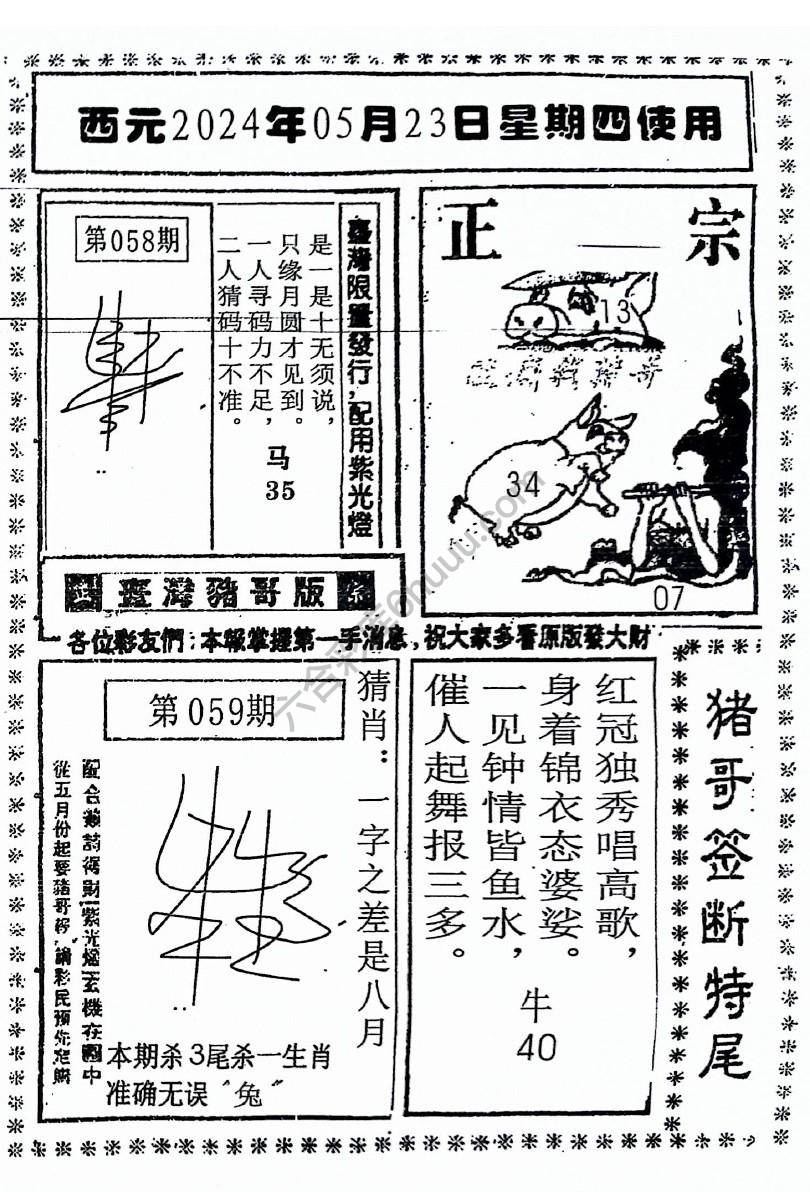 西元2024年05月23日星期四使用
第058期
是一是十无须说，
只缘月圆才见到。
一人寻码力不足，
二人猜码十不准。
马
35
臺灣限量發行，配用紫光燈
臺灣豬哥版
正宗
13
34
07
各位彩友們：本報掌握第一手消息，祝大家多看原版發大財
第059期
猜肖：一字之差是八月
從五月份起要豬哥榜，請彩民預先定購
本期杀3尾杀一生肖
准确无误“兔”
红冠独秀唱高歌，
身着锦衣态婆娑。
一见钟情皆鱼水，
催人起舞报三多。
牛
40
猪哥签断特尾
六合彩库6huuu.com